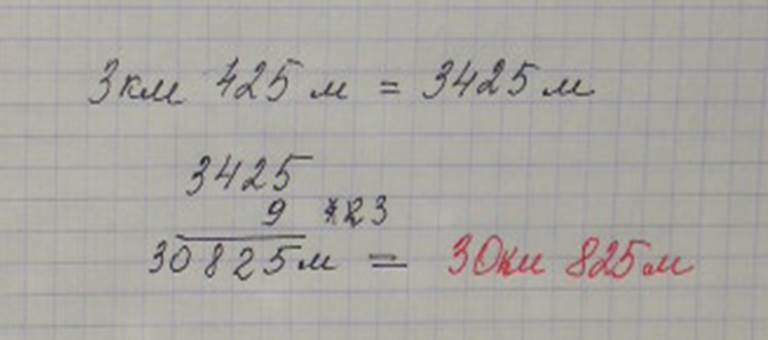 3км 425 м = 3425 м
3425
9 *23
30825м = 30км 825м